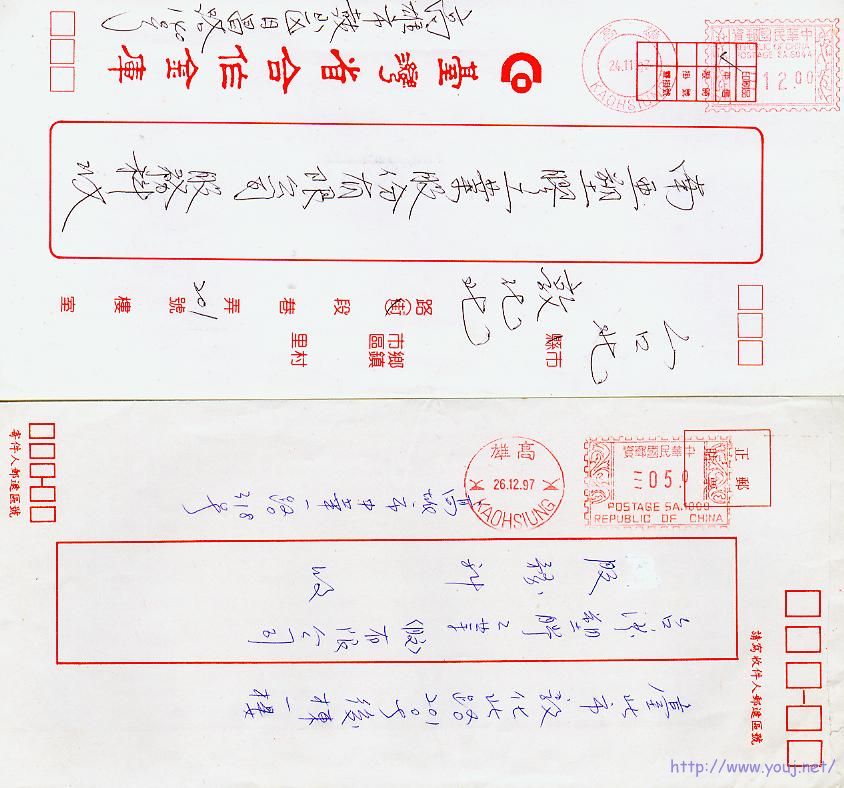 高雄市鼓山區
臺灣省合作金庫
高雄
24.11.97
KAOHSIUNG
中華民國國郵資
REPUBLIC OF CHINA
POSTAGE SA.
12.00
印刷品
平信
限時
掛號
雙掛號
南亞塑膠工業股份有限公司
股務科收
台北
縣市
敦化北
路街
段
巷
弄
201
號
樓
室
鄉鎮
市區
村里
高雄
26.12.97
KAOHSIUNG
中華民國郵資
05.0
POSTAGE SA.1009
REPUBLIC OF CHINA
正貼
郵票
寄件人郵遞區號
高雄市中華一路318号
股務科 收
台灣塑膠工業(股)有限公司
臺北市敦化北路201号後棟一樓
請寫收件人郵遞區號
http://www.youj.net/